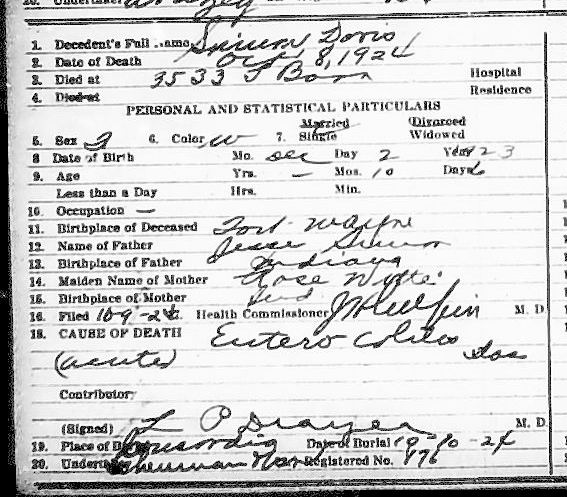 20. Undertaker
1. Decedent's Full Name Spium Doris
2. Date of Death Oct 8, 1924
3. Died at 3533 S
Hospital
4. Died at
Residence
PERSONAL AND STATISTICAL PARTICULARS
Married Divorced
5. Sex F 6. Color W 7. Single Widowed
8 Date of Birth Mo. Dec Day 2 Year 23
9. Age Yrs. — Mos. 10 Days 6
Less than a Day Hrs. Min.
10. Occupation —
11. Birthplace of Deceased Fort Wayne
12. Name of Father Jesse
13. Birthplace of Father Indiana
14. Maiden Name of Mother Rose
15. Birthplace of Mother Ind
16. Filed 10-9-24 Health Commissioner M. D.
18. CAUSE OF DEATH Entero Colitis
(acute)
Contributor
(Signed) L P Drayer M. D.
19. Place of Burial Concordia Date of Burial 10-10-24
20. Undertaker Registered No. 176